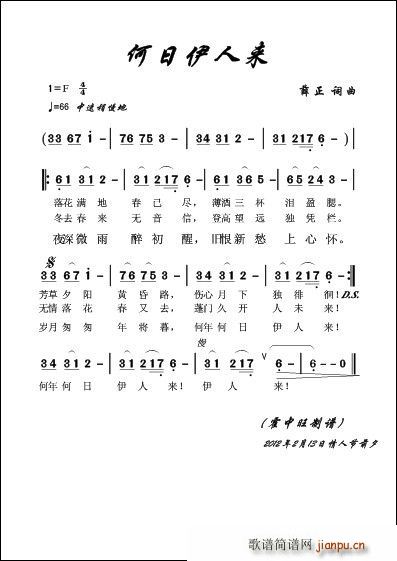 何日伊人来
1=F 4/4
薛正 词曲
♩=66 中速稍慢地
(33 67 1 - | 76 75 3 - | 34 31 2 - | 31 217 6 -) |
‖: 61 31 2 - | 31 217 6 - | 61 36 5 - | 65 24 3 - |
落花 满 地 春 已 尽, 薄酒 三 杯 泪 盈 腮。
冬去 春 来 无 音 信, 登高 望 远 独 凭 栏。
夜深 微 雨 醉 初 醒, 旧恨 新 愁 上 心 怀。
33 67 1 - | 76 75 3 - | 34 31 2 - | 31 217 6 - :‖
芳草 夕 阳 黄 昏 路, 伤心 月 下 独 徘 徊! D.S.
无情 落 花 春 又 去, 蓬门 久 开 人 未 来!
岁月 匆 匆 年 将 暮, 何年 何 日 伊 人 来!
慢
34 31 2 - | 31 217 6 - | 31 217 6 - | 6 - 6 - - 0 ‖
何年 何 日 伊 人 来! 伊 人 来!
(霍中旺制谱)
2012年2月13日情人节前夕
歌谱简谱网
jianpu.cn